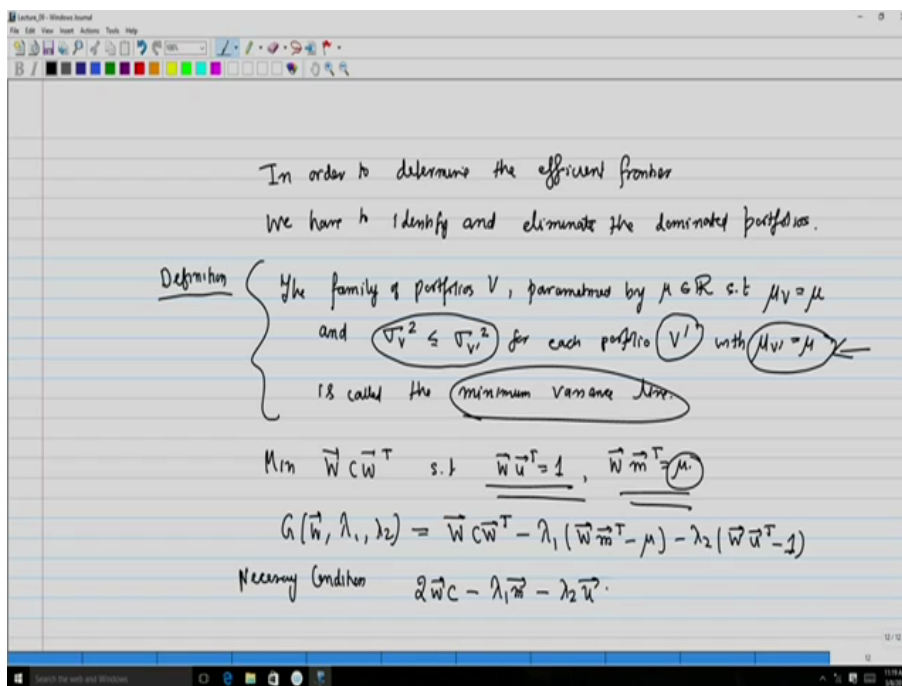 Lecture_09 - Windows Journal
File Edit View Insert Actions Tools Help
B I
In order to determine the efficient frontier
We have to identify and eliminate the dominated portfolios.
Definition
The family of portfolios V, parametrized by μ ∈ ℝ s.t μ_V = μ
and σ_V² ≤ σ_V'² for each portfolio V' with μ_V' = μ
is called the minimum variance line.
Min w⃗ C w⃗ᵀ s.t w⃗ u⃗ᵀ = 1, w⃗ m⃗ᵀ = μ.
G(w⃗, λ₁, λ₂) = w⃗ C w⃗ᵀ − λ₁(w⃗ m⃗ᵀ − μ) − λ₂(w⃗ u⃗ᵀ − 1)
Necessary Condition 2w⃗C − λ₁m⃗ − λ₂u⃗.
12 / 12
12
Search the web and Windows